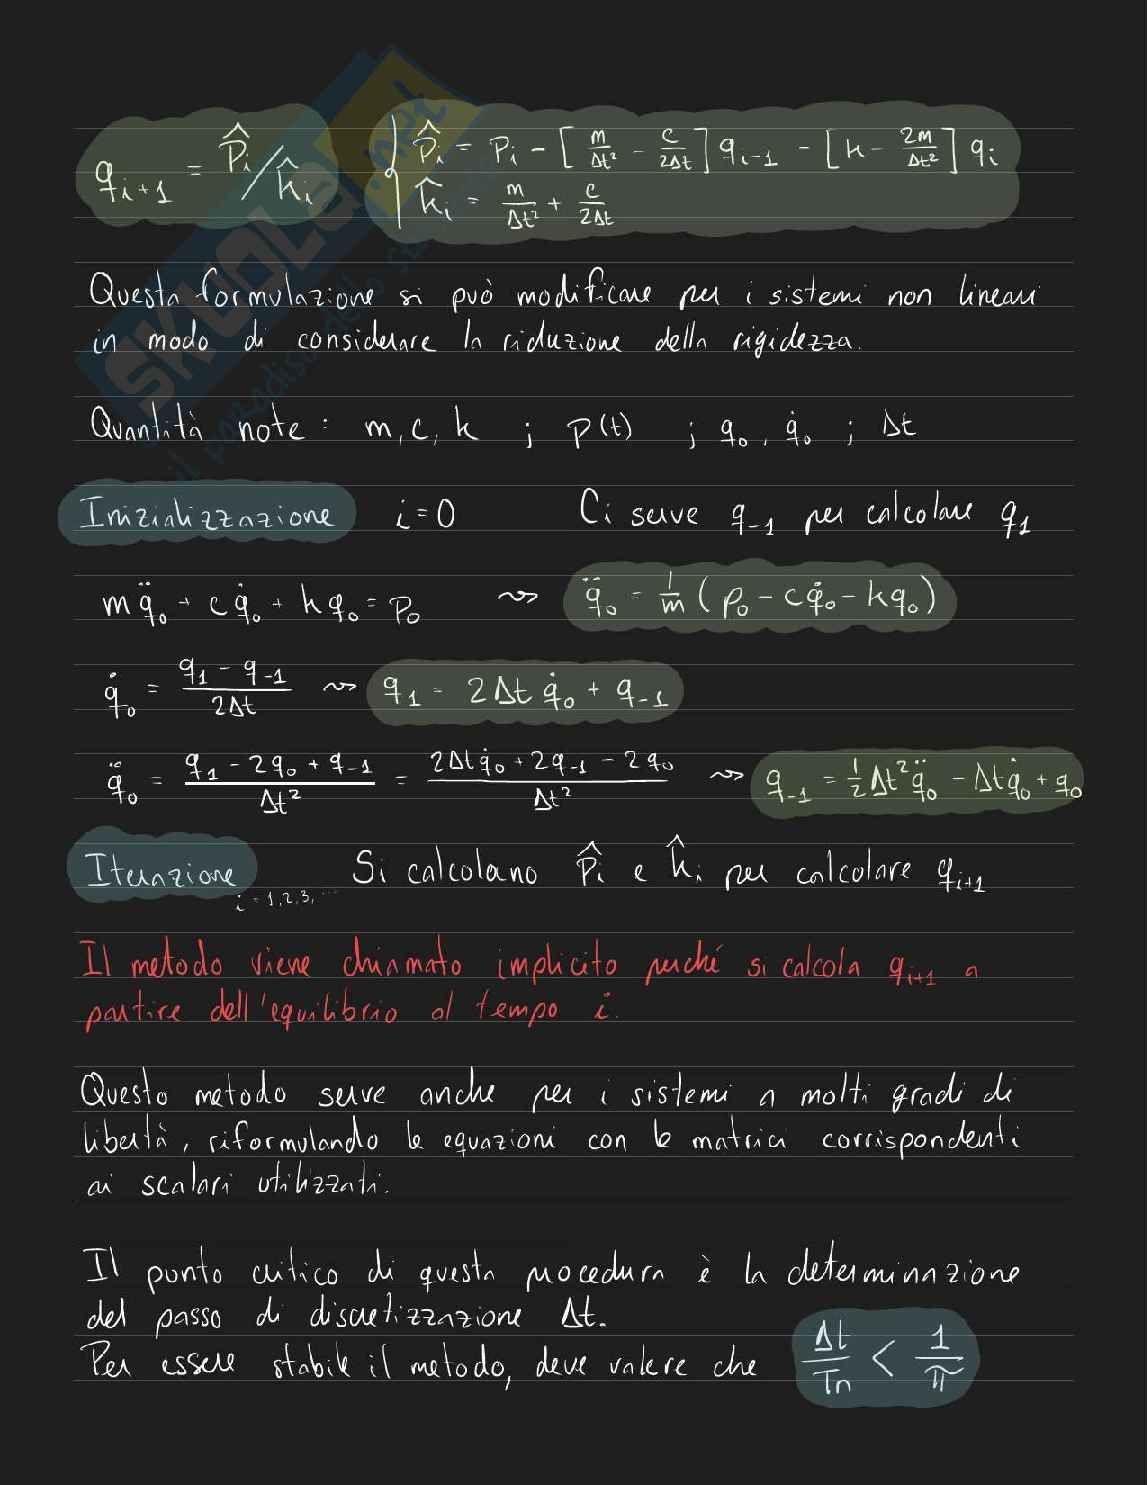 q_{i+1} = p̂_i / k̂_i    { p̂_i = p_i - [m/Δt² - c/2Δt] q_{i-1} - [k - 2m/Δt²] q_i
k̂_i = m/Δt² + c/2Δt
Questa formulazione si può modificare per i sistemi non lineari
in modo di considerare la riduzione della rigidezza.
Quantità note: m, c, k ; p(t) ; q_0, q̇_0 ; Δt
Inizializzazione i=0 Ci serve q_{-1} per calcolare q_1
m q̈_0 + c q̇_0 + k q_0 = p_0 ⇝ q̈_0 = 1/m (p_0 - c q̇_0 - k q_0)
q̇_0 = (q_1 - q_{-1})/2Δt ⇝ q_1 = 2Δt q̇_0 + q_{-1}
q̈_0 = (q_1 - 2q_0 + q_{-1})/Δt² = (2Δt q̇_0 + 2q_{-1} - 2q_0)/Δt² ⇝ q_{-1} = 1/2 Δt² q̈_0 - Δt q̇_0 + q_0
Iterazione Si calcolano p̂_i e k̂_i per calcolare q_{i+1}
i = 1,2,3,...
Il metodo viene chiamato implicito perché si calcola q_{i+1} a
partire dell'equilibrio al tempo i.
Questo metodo serve anche per i sistemi a molti gradi di
libertà, riformulando le equazioni con le matrici corrispondenti
ai scalari utilizzati.
Il punto critico di questa procedura è la determinazione
del passo di discretizzazione Δt.
Per essere stabile il metodo, deve valere che Δt/Tn < 1/π
SKUOLA.net
il paradiso dello